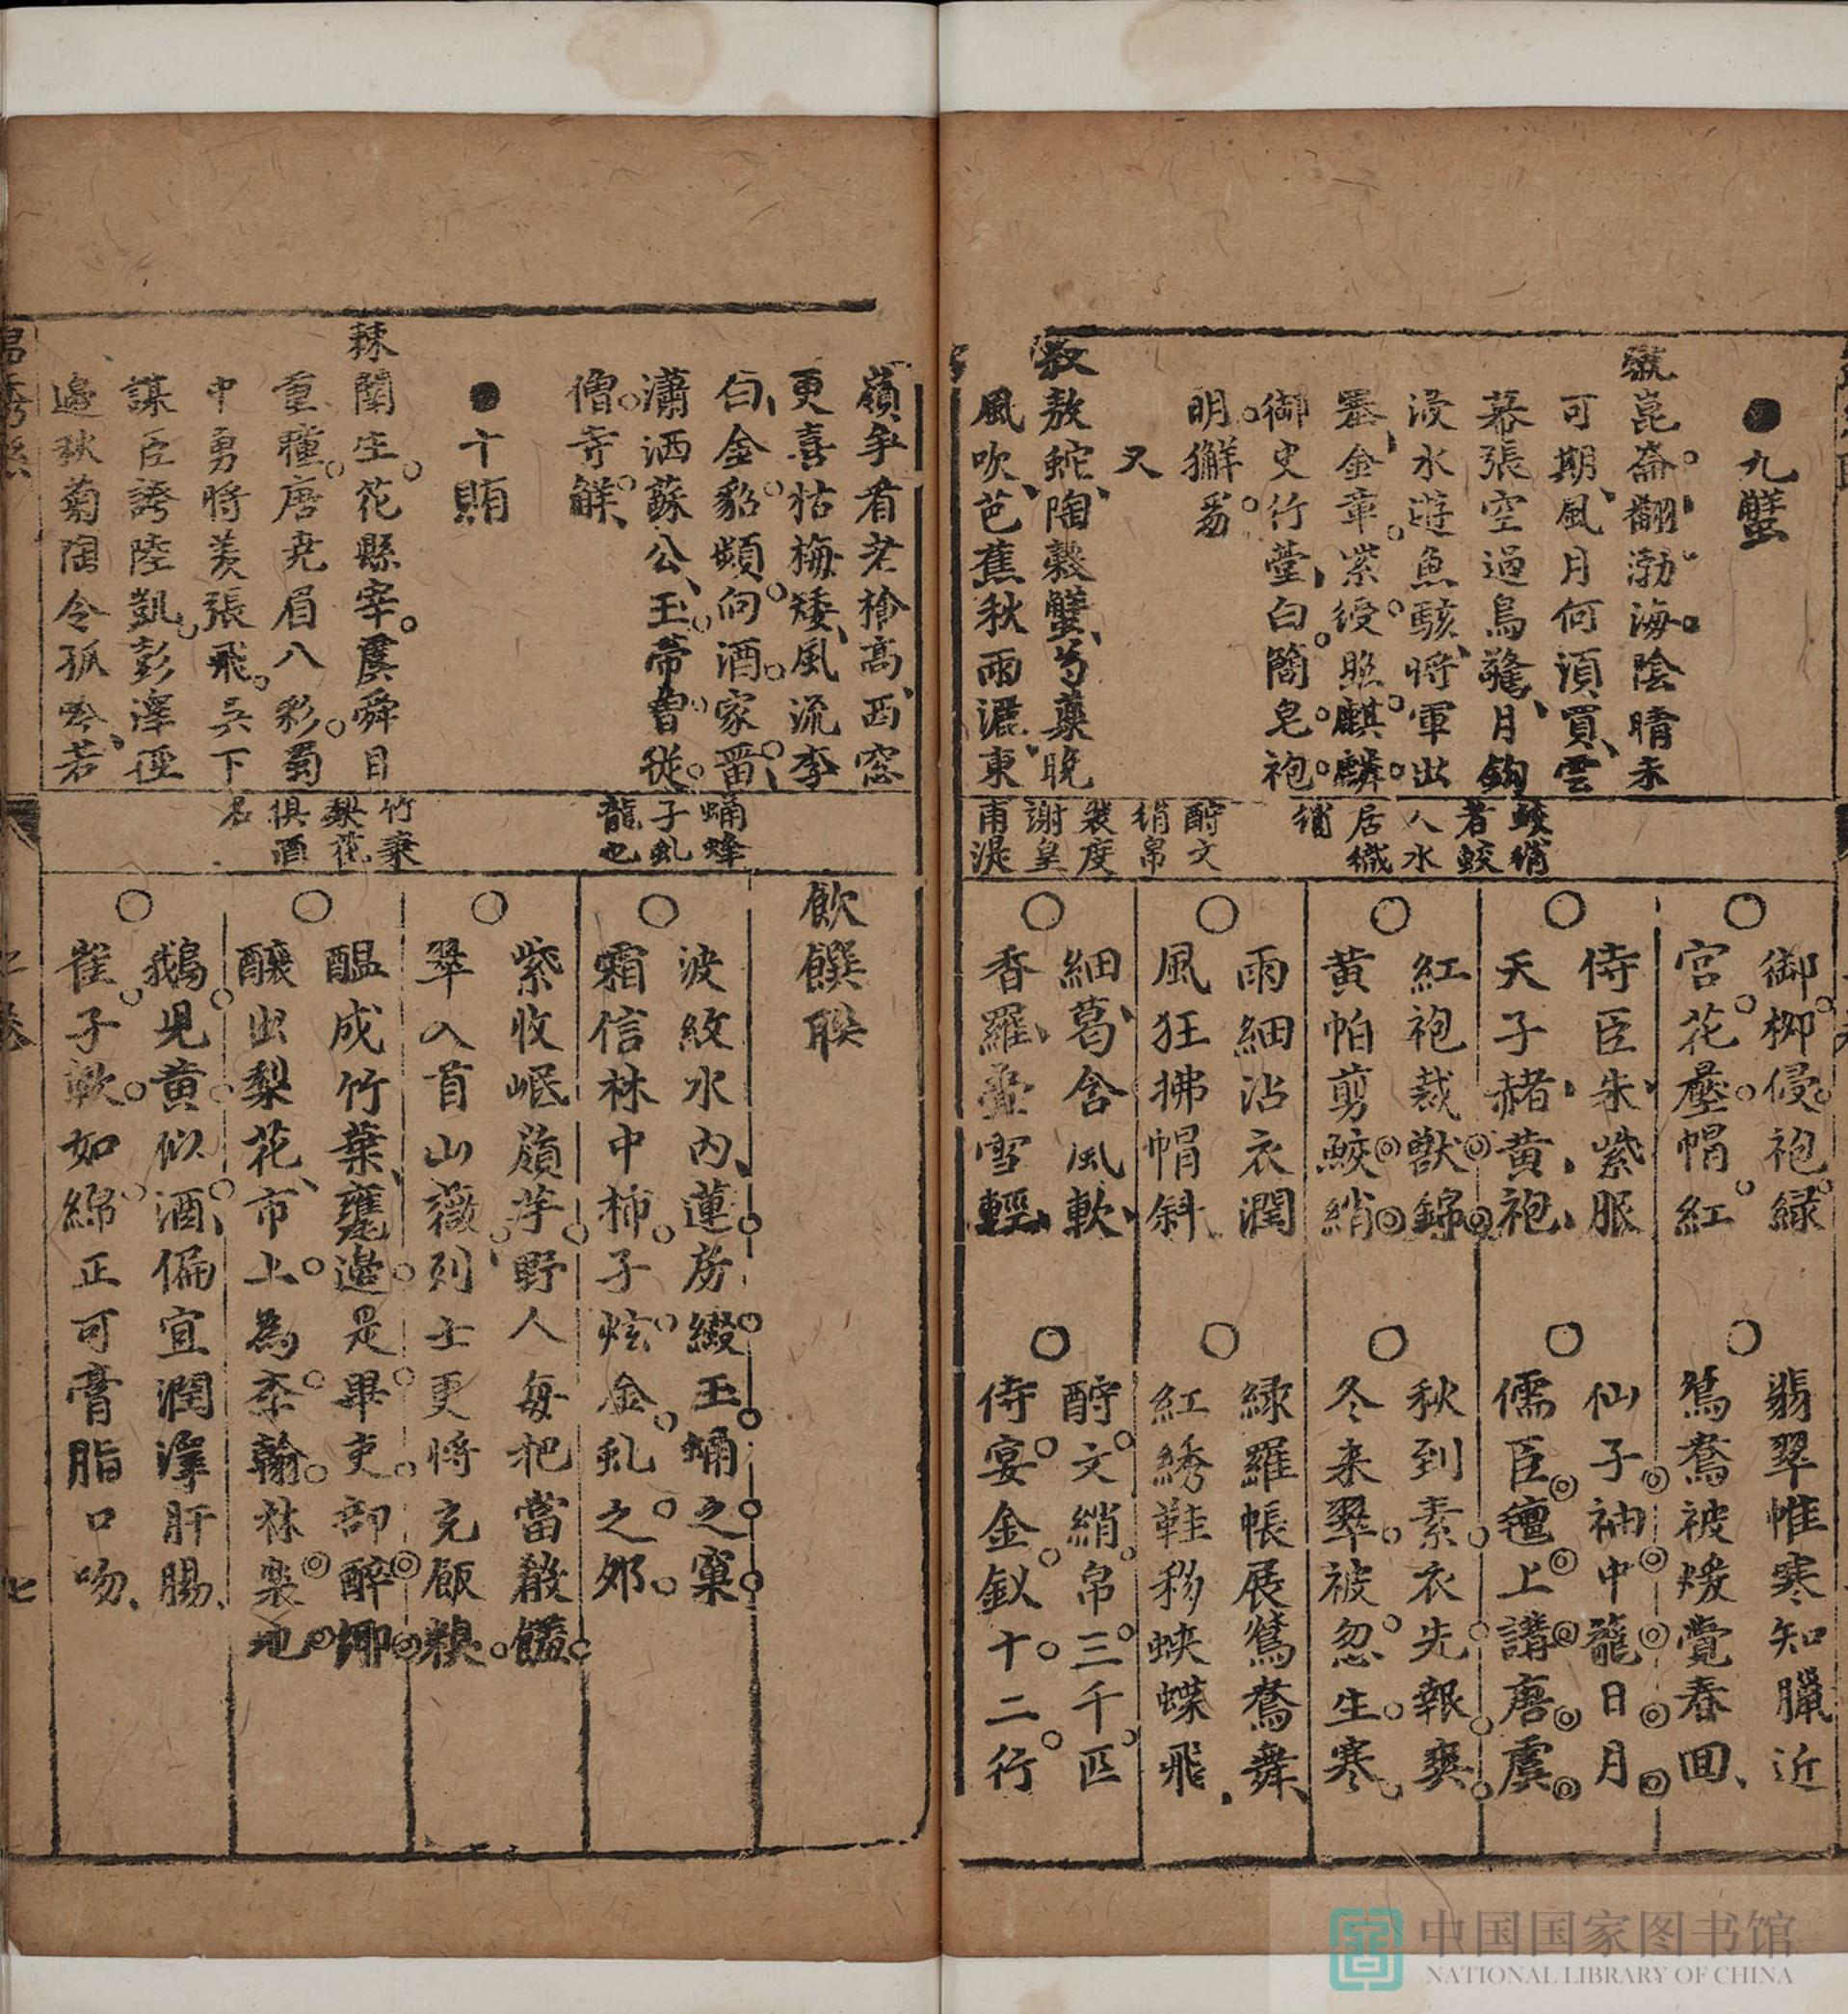 ●九蟹
崑崙翻渤海陰晴未
可期風月何須買雲
幕張空過鳥驚月鈎
浸水遊魚駭將軍出
塞金章紫綬照麒麟
御史行臺白簡皂袍
明獬豸
又
敖蛇陶穀蟹芍藥晚
風吹芭蕉秋雨灑東
鮫綃
若鮫
人水
居織
綃
酧文
綃帛
裴度
謝皇
甫湜
御柳侵袍緑
宮花壓帽紅
侍臣朱紫服
天子赭黄袍
紅袍裁獸錦
黄帕剪鮫綃
雨細沾衣潤
風狂拂帽斜
細葛含風軟
香羅疊雪輕
翡翠帷寒知臘近
鴛鴦被煖覺春回
仙子袖中籠日月
儒臣氊上講唐虞
秋到素衣先報爽
冬来翠被忽生寒
緑羅帳展鴛鴦舞
紅綉鞋移蛺蝶飛
酧文綃帛三千匹
侍宴金釵十二行
嶺争看老檜高西窓
更喜枯梅矮風流李
白金貂頻向酒家留
瀟洒蘇公玉帶曾從
僧寺解
●十賄
闈生花縣宰虞舜目
重瞳唐尭眉八彩蜀
中勇將羡張飛吳下
謀臣誇陸凱彭澤徑
邉秋菊陶令孤吟若
蛹蜂
子虬
龍也
竹葉
梨花
俱酒
名
飲饌聫
波紋水内蓮房綴玉蛹之窠
霜信林中柿子炫金虬之夘
紫收岷嶺芋野人每把當殽饈
翠入首山薇列士更將充飯糗
醖成竹葉甕邉是畢吏部醉鄉
釀出梨花市上為李翰林樂地
鵝兒黄似酒偏宜潤澤肝腸
雀子軟如綿正可膏脂口吻
二卷
七
中国国家图书馆
NATIONAL LIBRARY OF CHINA